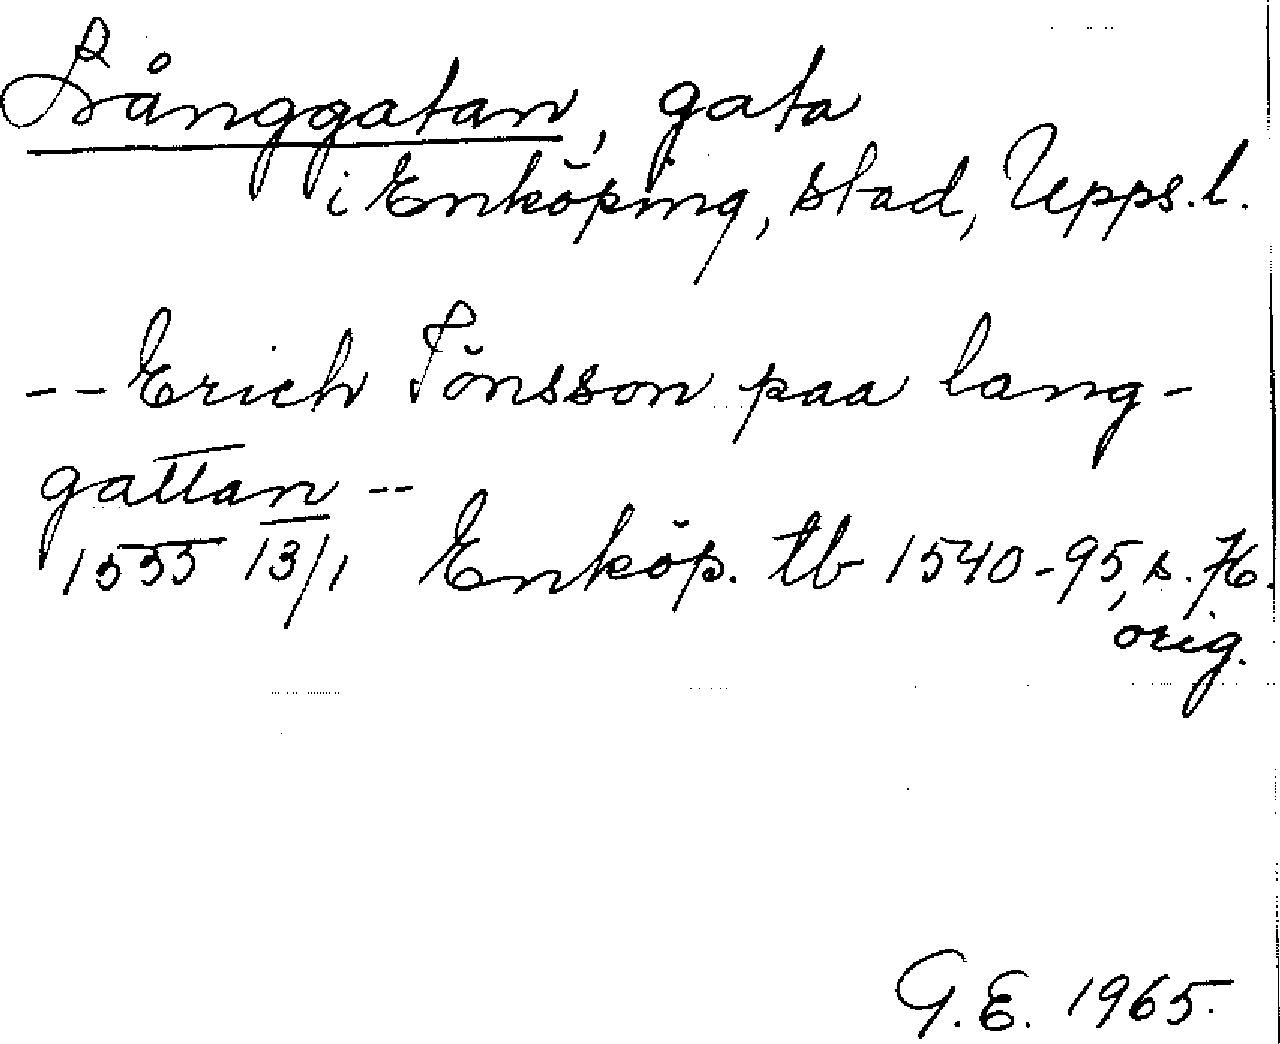 Långgatan, gata
i Enköping, stad, Upps.l.
-- Erich Jönsson paa lang-
gattan --
1555 13/1 Enköp. tb 1540-95, s. 76.
orig.
G.E. 1965.